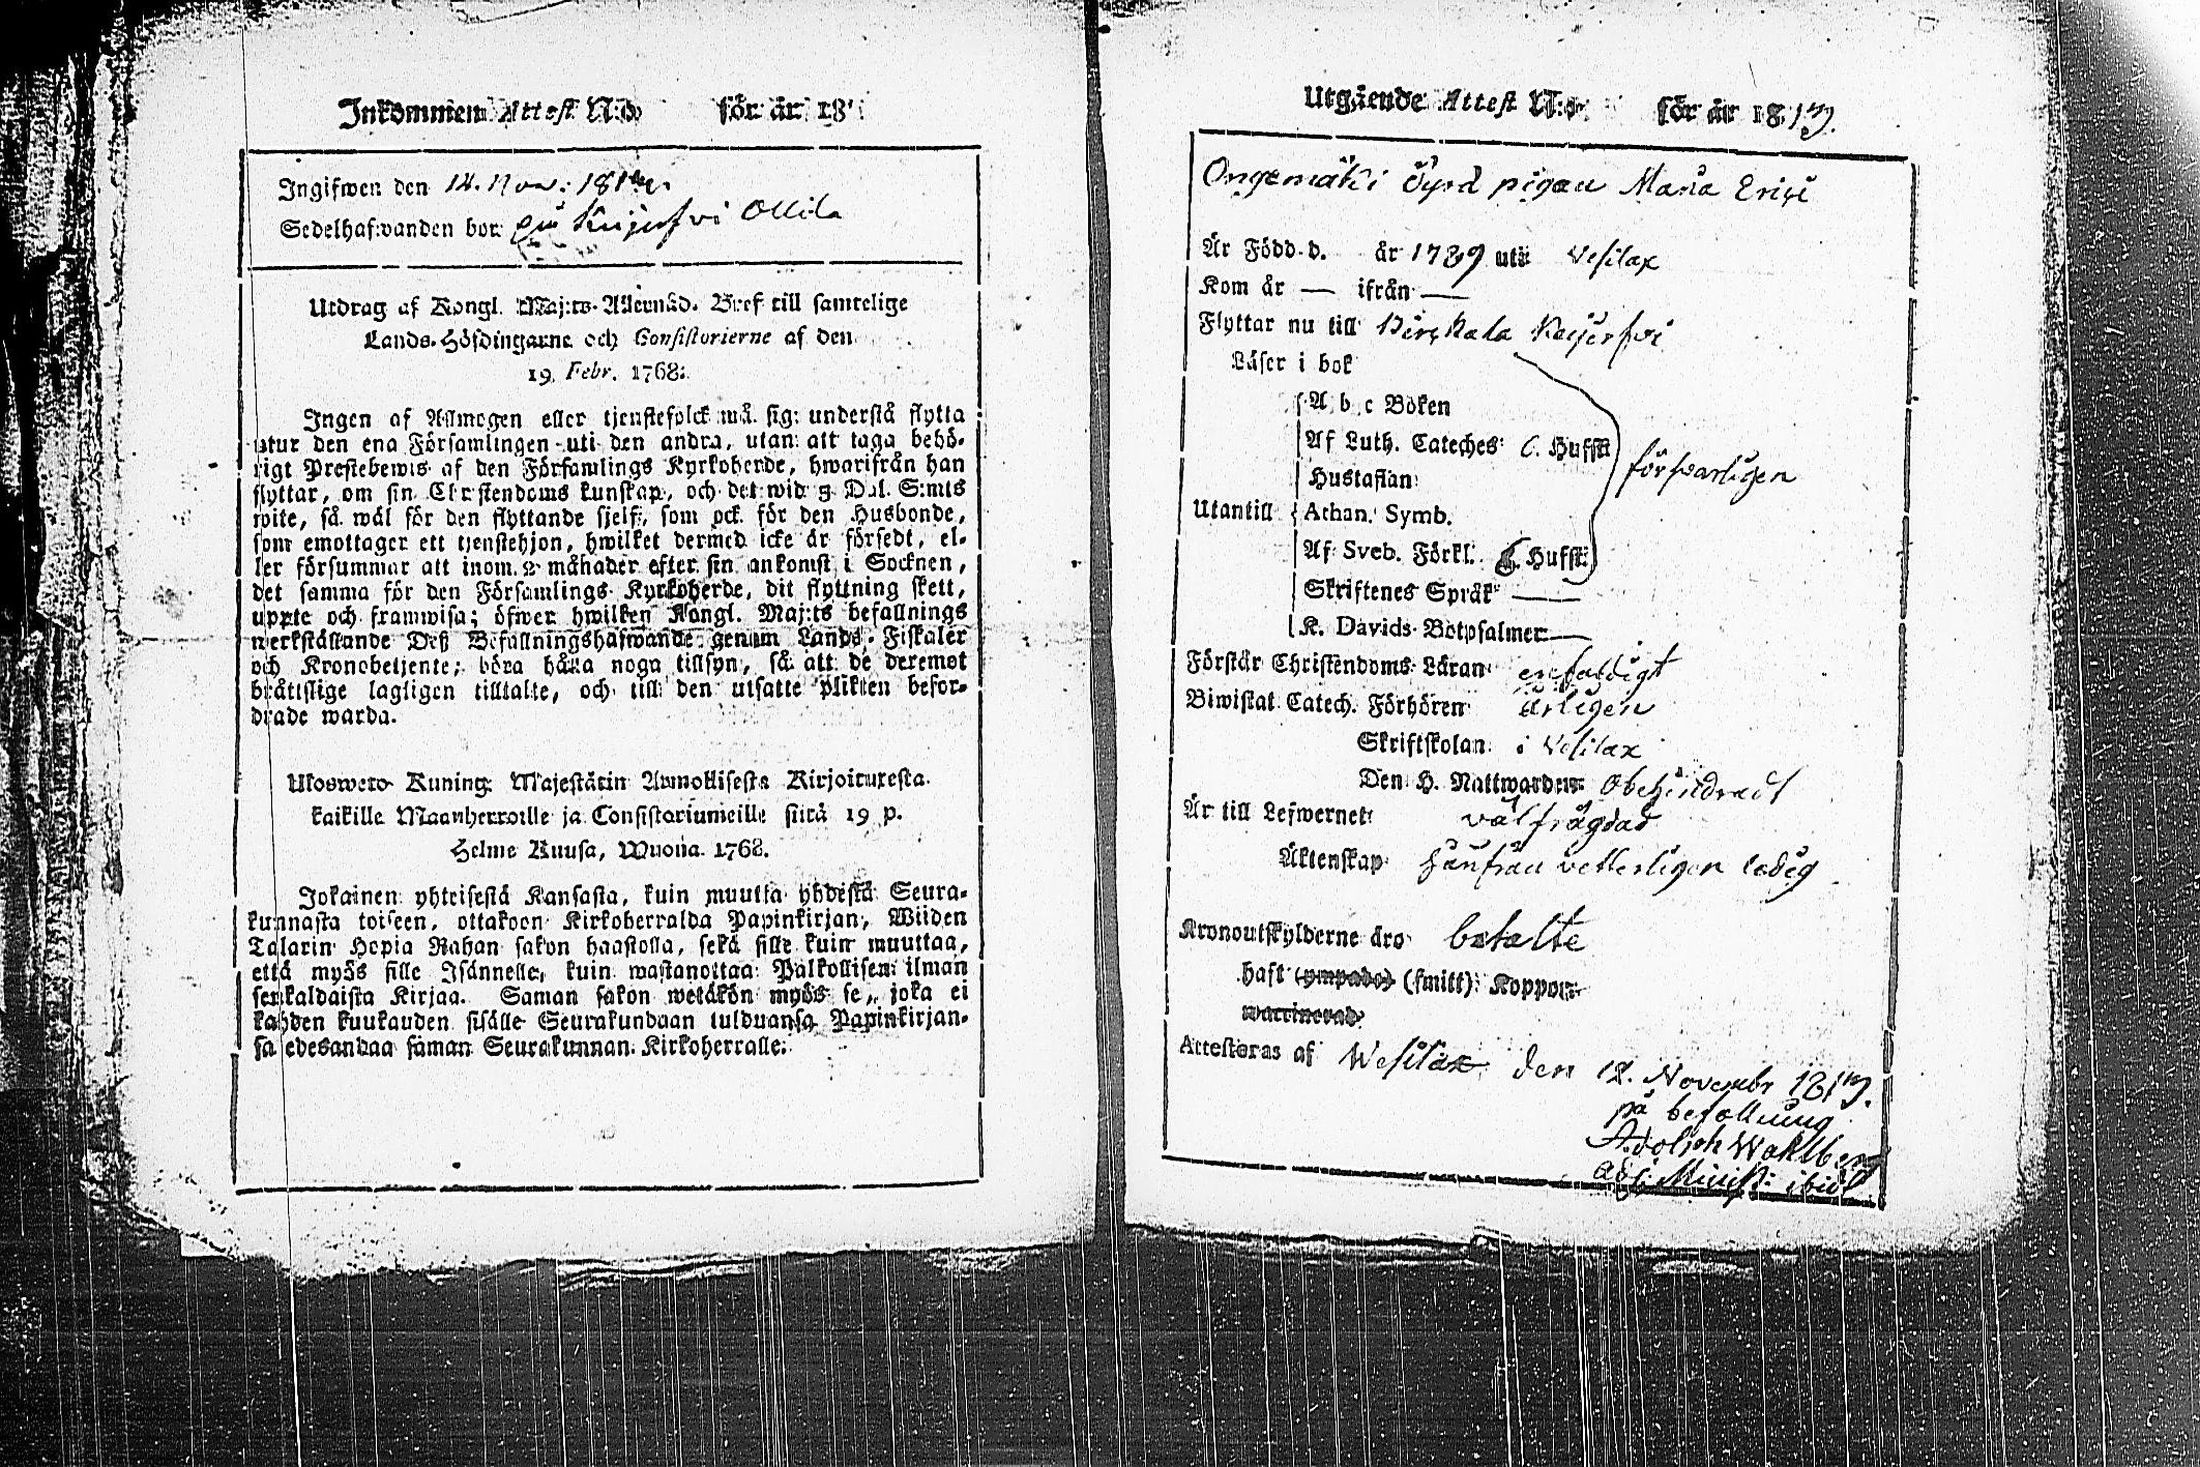 Inkommen Attest N:o för år 18
Ingifwen den 14. Nov:
Sedelhafwanden bor Ollila
Utdrag af Kongl. Maj:ts Allernåd. Bref till samtelige
Lands-Höfdingarne och Consistorierne af den
19. Febr. 1768.
Ingen af Allmogen eller tjenstefolck må sig understå flytta
utur den ena Församlingen uti den andra, utan att taga behö-
rigt Prestebewis af den Församlings Kyrkoherde, hwarifrån han
flyttar, om sin Christendoms kunskap, och det wid 5 Dal. S:mts
wite, så wäl för den flyttande sjelf, som ock för den Husbonde,
som emottager ett tjenstehjon, hwilket dermed icke är försedt, el-
ler försummar att inom 2 månader efter sin ankomst i Socknen,
det samma för den Församlings Kyrkoherde, dit flyttning skett,
uppte och framwisa; öfwer hwilken Kongl. Maj:ts befallnings
werkställande Deß Befallningshafwande genom Lands-Fiskaler
och Kronobetjente, böra hålla noga tillsyn, så att de deremot
bråttslige lagligen tilltalte, och till den utsatte plikten befor-
drade warda.
Ulosweto Kuning. Majestätin Armollisesta Kirjoituresta
kaikille Maanherroille ja Consistoriumeille siitä 19 p.
Helme Kuusa, Wuonna 1768.
Jokainen yhteisestä Kansasta, kuin muutta yhdestä Seura-
kunnasta toiseen, ottakoon Kirkoherralda Papinkirjan, Wiiden
Talarin Hopia Rahan sakon haastolla, sekä sille kuin muuttaa,
että myös sille Isännelle, kuin wastanottaa Palkollisen ilman
senkaldaista Kirjaa. Saman sakon wetäkön myös se, joka ei
kahden kuukauden sisälle Seurakundaan tulduansa Papinkirjan-
sa edesandaa saman Seurakunnan Kirkoherralle.
Utgående Attest N:o för år 1817.
Ongemäki pigan Maria Erici
Är Född d. år 1789 uti Vesilax
Kom år — ifrån —
Flyttar nu till Birkkala
Läser i bok
A b c Boken
Af Luth. Cateches: 6. Hufst
försvarligen
Hustaflan
Utantill Athan. Symb.
Af Sveb. Förkl. 6. Hufst
Skriftenes Språk —
K. Davids Botpsalmer —
Förstår Christendoms Läran enfaldigt
Biwistat Catech. Förhören årligen
Skriftskolan i Vesilax
Den H. Nattwarden Obehindradt
Är till Lefwernet välfrägdad
Äktenskap vetterligen ledig
Kronoutskylderne äro betalte
haft (ympade) (smitt) Koppor
waccinerad
Attesteras af Wesilax den 12. Novembr 1817.
på befallning
Adolph Wahlberg
adj. ibid.